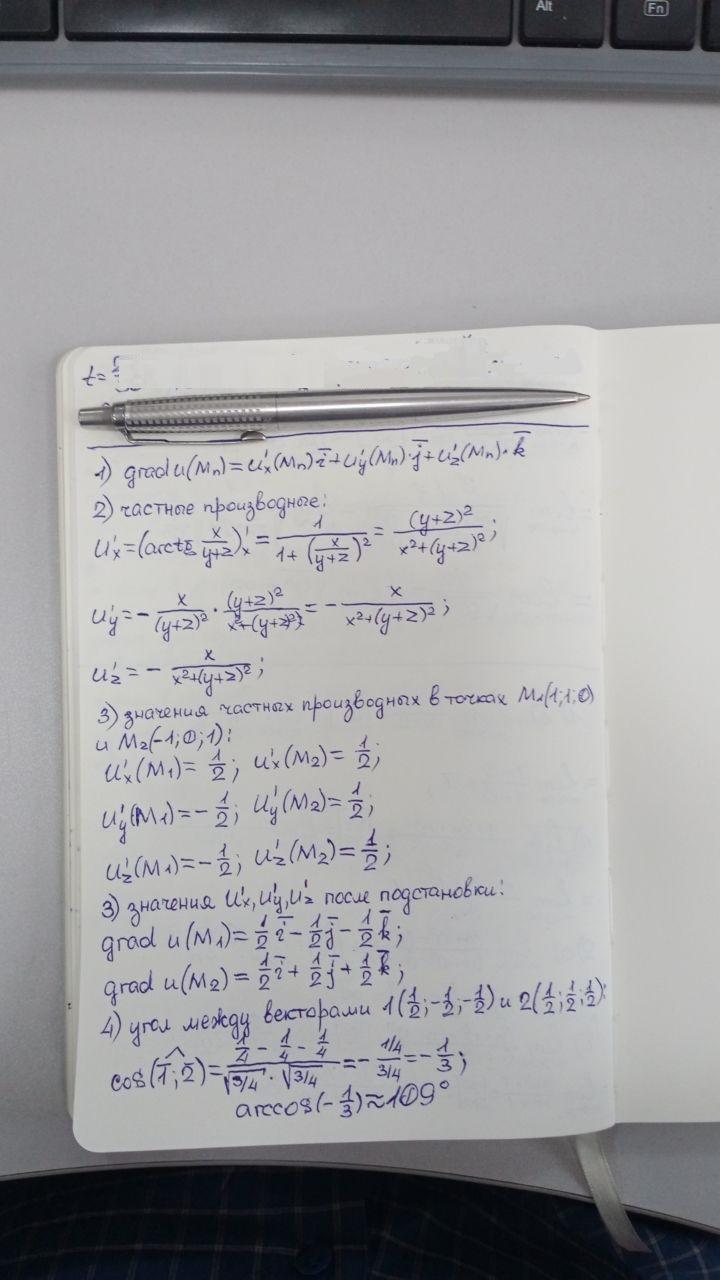 Alt
Fn
t=
1) grad u(Mn) = u'x(Mn) i̅ + u'y(Mn)·j̅ + u'z(Mn)·k̅
2) частные производные:
u'x = (arctg x/(y+z))'x = 1/(1+(x/(y+z))²) = (y+z)²/(x²+(y+z)²);
u'y = - x/(y+z)² · (y+z)²/(x²+(y+z)²) = - x/(x²+(y+z)²);
u'z = - x/(x²+(y+z)²);
3) значения частных производных в точках M1(1;1;0)
и M2(-1;0;1):
u'x(M1) = 1/2; u'x(M2) = 1/2;
u'y(M1) = - 1/2; u'y(M2) = 1/2;
u'z(M1) = - 1/2; u'z(M2) = 1/2;
3) значения u'x, u'y, u'z после подстановки:
grad u(M1) = 1/2 i̅ - 1/2 j̅ - 1/2 k̅;
grad u(M2) = 1/2 i̅ + 1/2 j̅ + 1/2 k̅;
4) угол между векторами 1(1/2; -1/2; -1/2) и 2(1/2; 1/2; 1/2):
cos(1̅;2̅) = (1/4 - 1/4 - 1/4)/(√3/4 · √3/4) = - (1/4)/(3/4) = - 1/3;
arccos(- 1/3) ≈ 109°